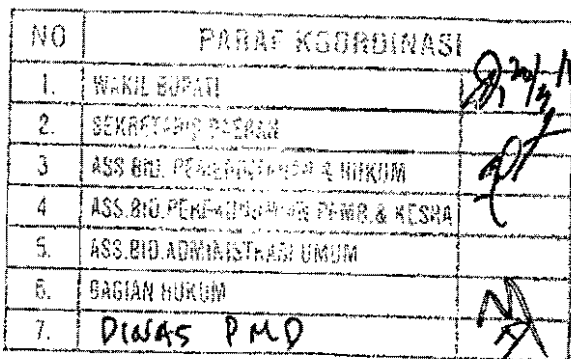 NO PARAF KOORDINASI
1. WAKIL BUPATI
2. SEKRETARIS DAERAH
3 ASS BID. PEMERINTAHAN & HUKUM
4 ASS.BID.PEREKONOMIAN PEMB.& KESRA
5. ASS.BID.ADMINISTRASI UMUM
6. BAGIAN HUKUM
7. DINAS PMD